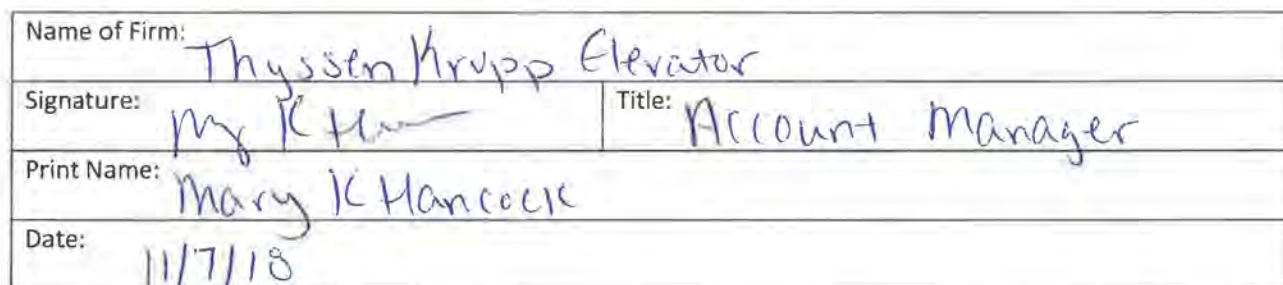 Name of Firm: Thyssen Krupp Elevator
Signature: Title: Account Manager
Print Name: Mary K Hancock
Date: 11/7/18